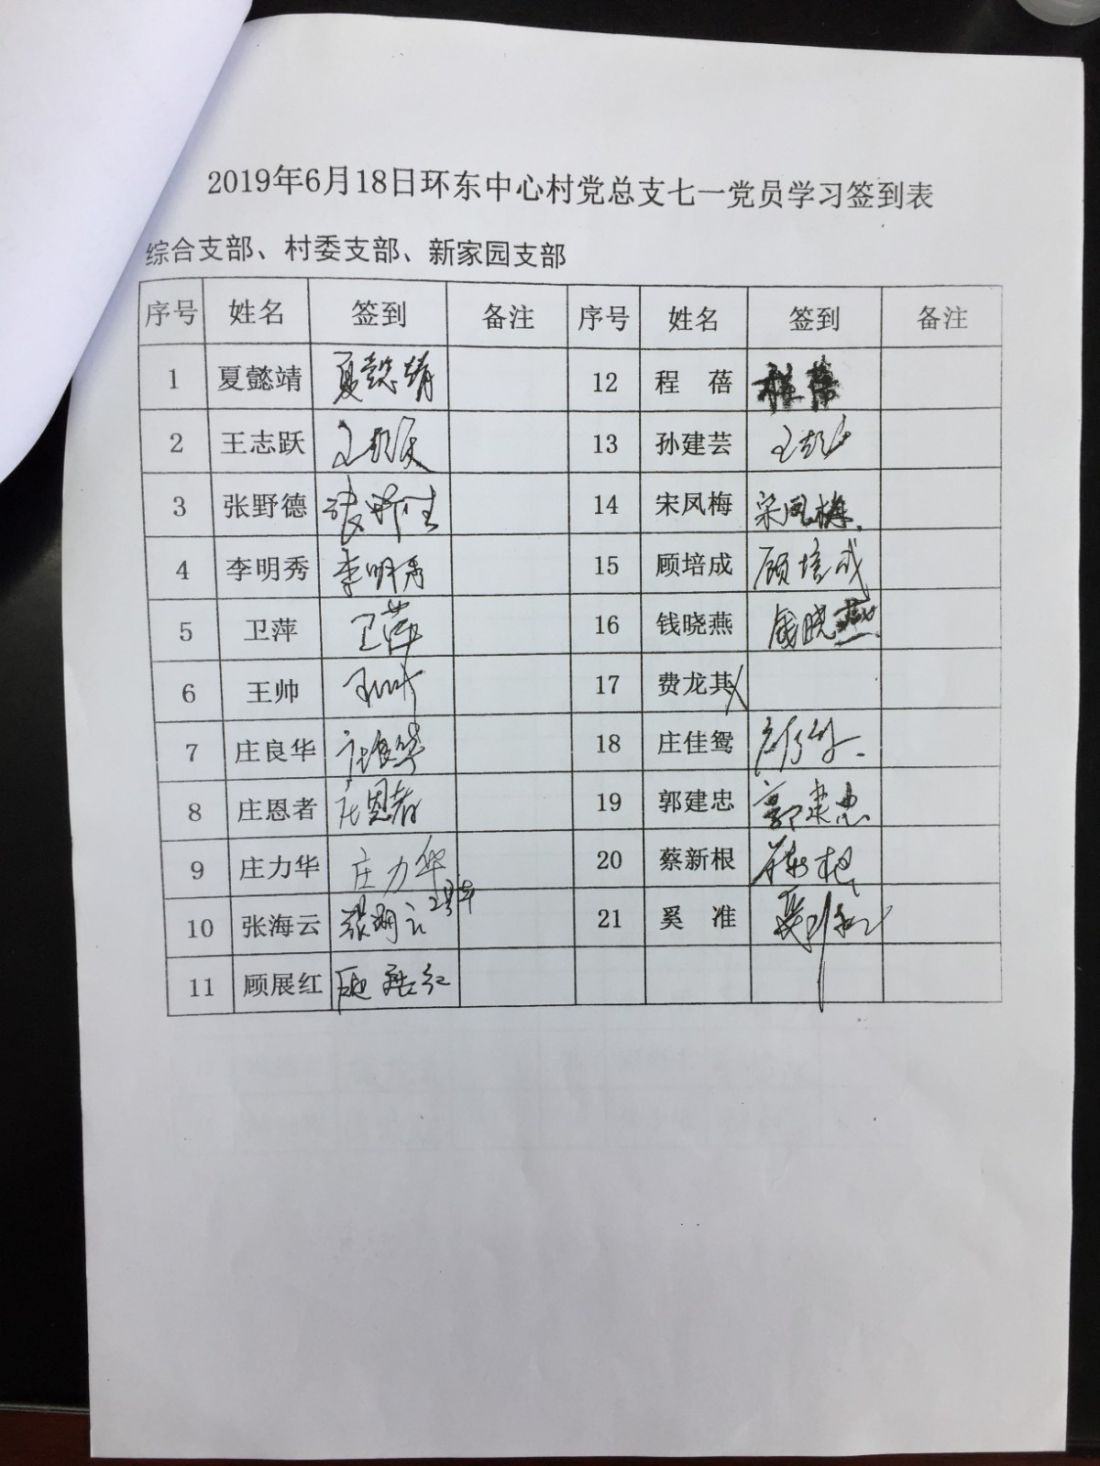 2019年6月18日环东中心村党总支七一党员学习签到表
综合支部、村委支部、新家园支部
序号 姓名 签到 备注 序号 姓名 签到 备注
1 夏懿靖 夏懿靖 12 程 蓓 程蓓
2 王志跃 13 孙建芸
3 张野德 14 宋凤梅 宋凤梅
4 李明秀 李明秀 15 顾培成 顾培成
5 卫萍 卫萍 16 钱晓燕 钱晓燕
6 王帅 王帅 17 费龙其
7 庄良华 庄良华 18 庄佳鸳
8 庄恩者 庄恩者 19 郭建忠 郭建忠
9 庄力华 庄力华 20 蔡新根
10 张海云 21 奚 准
11 顾展红